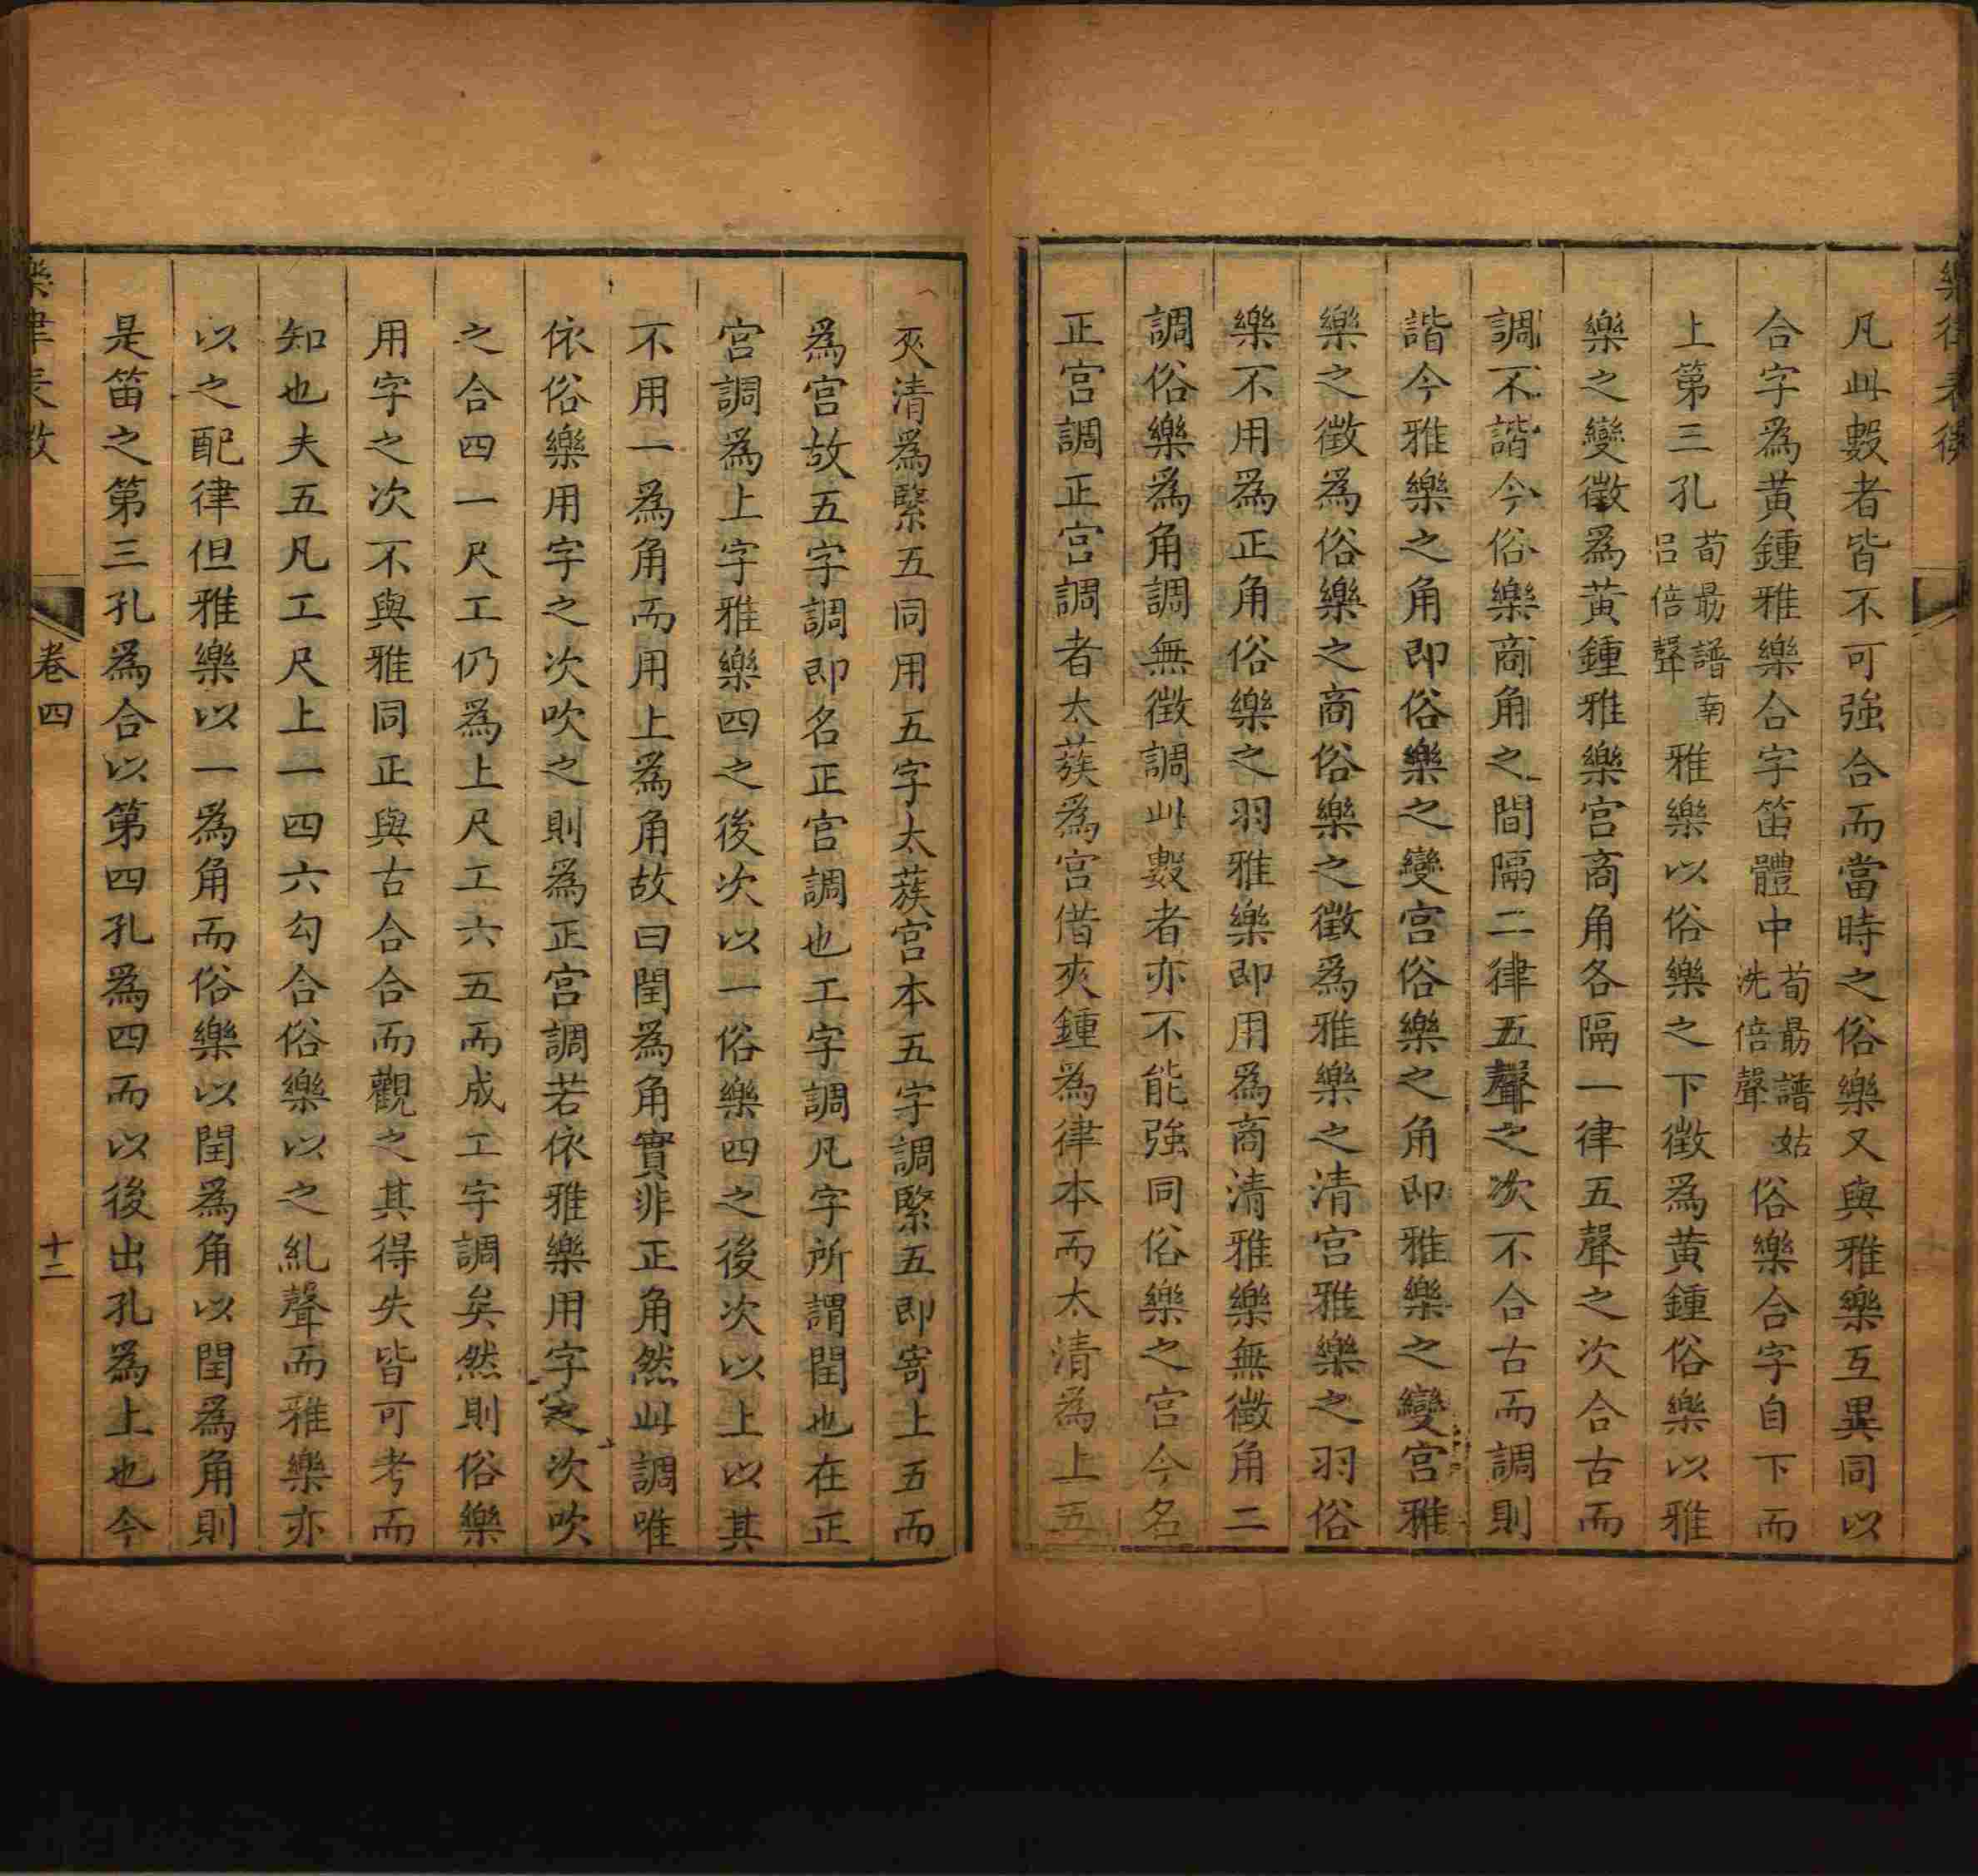 凡此數者皆不可強合而當時之俗樂又與雅樂互異同以
合字爲黃鍾雅樂合字笛體中荀勗譜姑洗倍聲俗樂合字自下而
上第三孔荀勗譜南呂倍聲雅樂以俗樂之下徵爲黃鍾俗樂以雅
樂之變徵爲黃鍾雅樂宮商角各隔一律五聲之次合古而
調不諧今俗樂商角之間隔二律五聲之次不合古而調則
諧今雅樂之角即俗樂之變宮俗樂之角即雅樂之變宮雅
樂之徵爲俗樂之商俗樂之徵爲雅樂之清宮雅樂之羽俗
樂不用爲正角俗樂之羽雅樂即用爲商清雅樂無徵角二
調俗樂爲角調無徵調此數者亦不能強同俗樂之宮今名
正宮調正宮調者太蔟爲宮借夾鍾爲律本而太清爲上五
夾清爲緊五同用五字太蔟宮本五字調緊五即寄上五而
爲宮故五字調即名正宮調也工字調凡字所謂閏也在正
宮調爲上字雅樂四之後次以一俗樂四之後次以上以其
不用一爲角而用上爲角故曰閏爲角實非正角然此調唯
依俗樂用字之次次吹之則爲正宮調若依雅樂用字之次吹
之合四一尺工仍爲上尺工六五而成工字調矣然則俗樂
用字之次不與雅同正與古合合而觀之其得失皆可考而
知也夫五凡工尺上一四六勾合俗樂以之糺聲而雅樂亦
以之配律但雅樂以一爲角而俗樂以閏爲角以閏爲角則
是笛之第三孔爲合以第四孔爲四而以後出孔爲上也今
卷四
十二